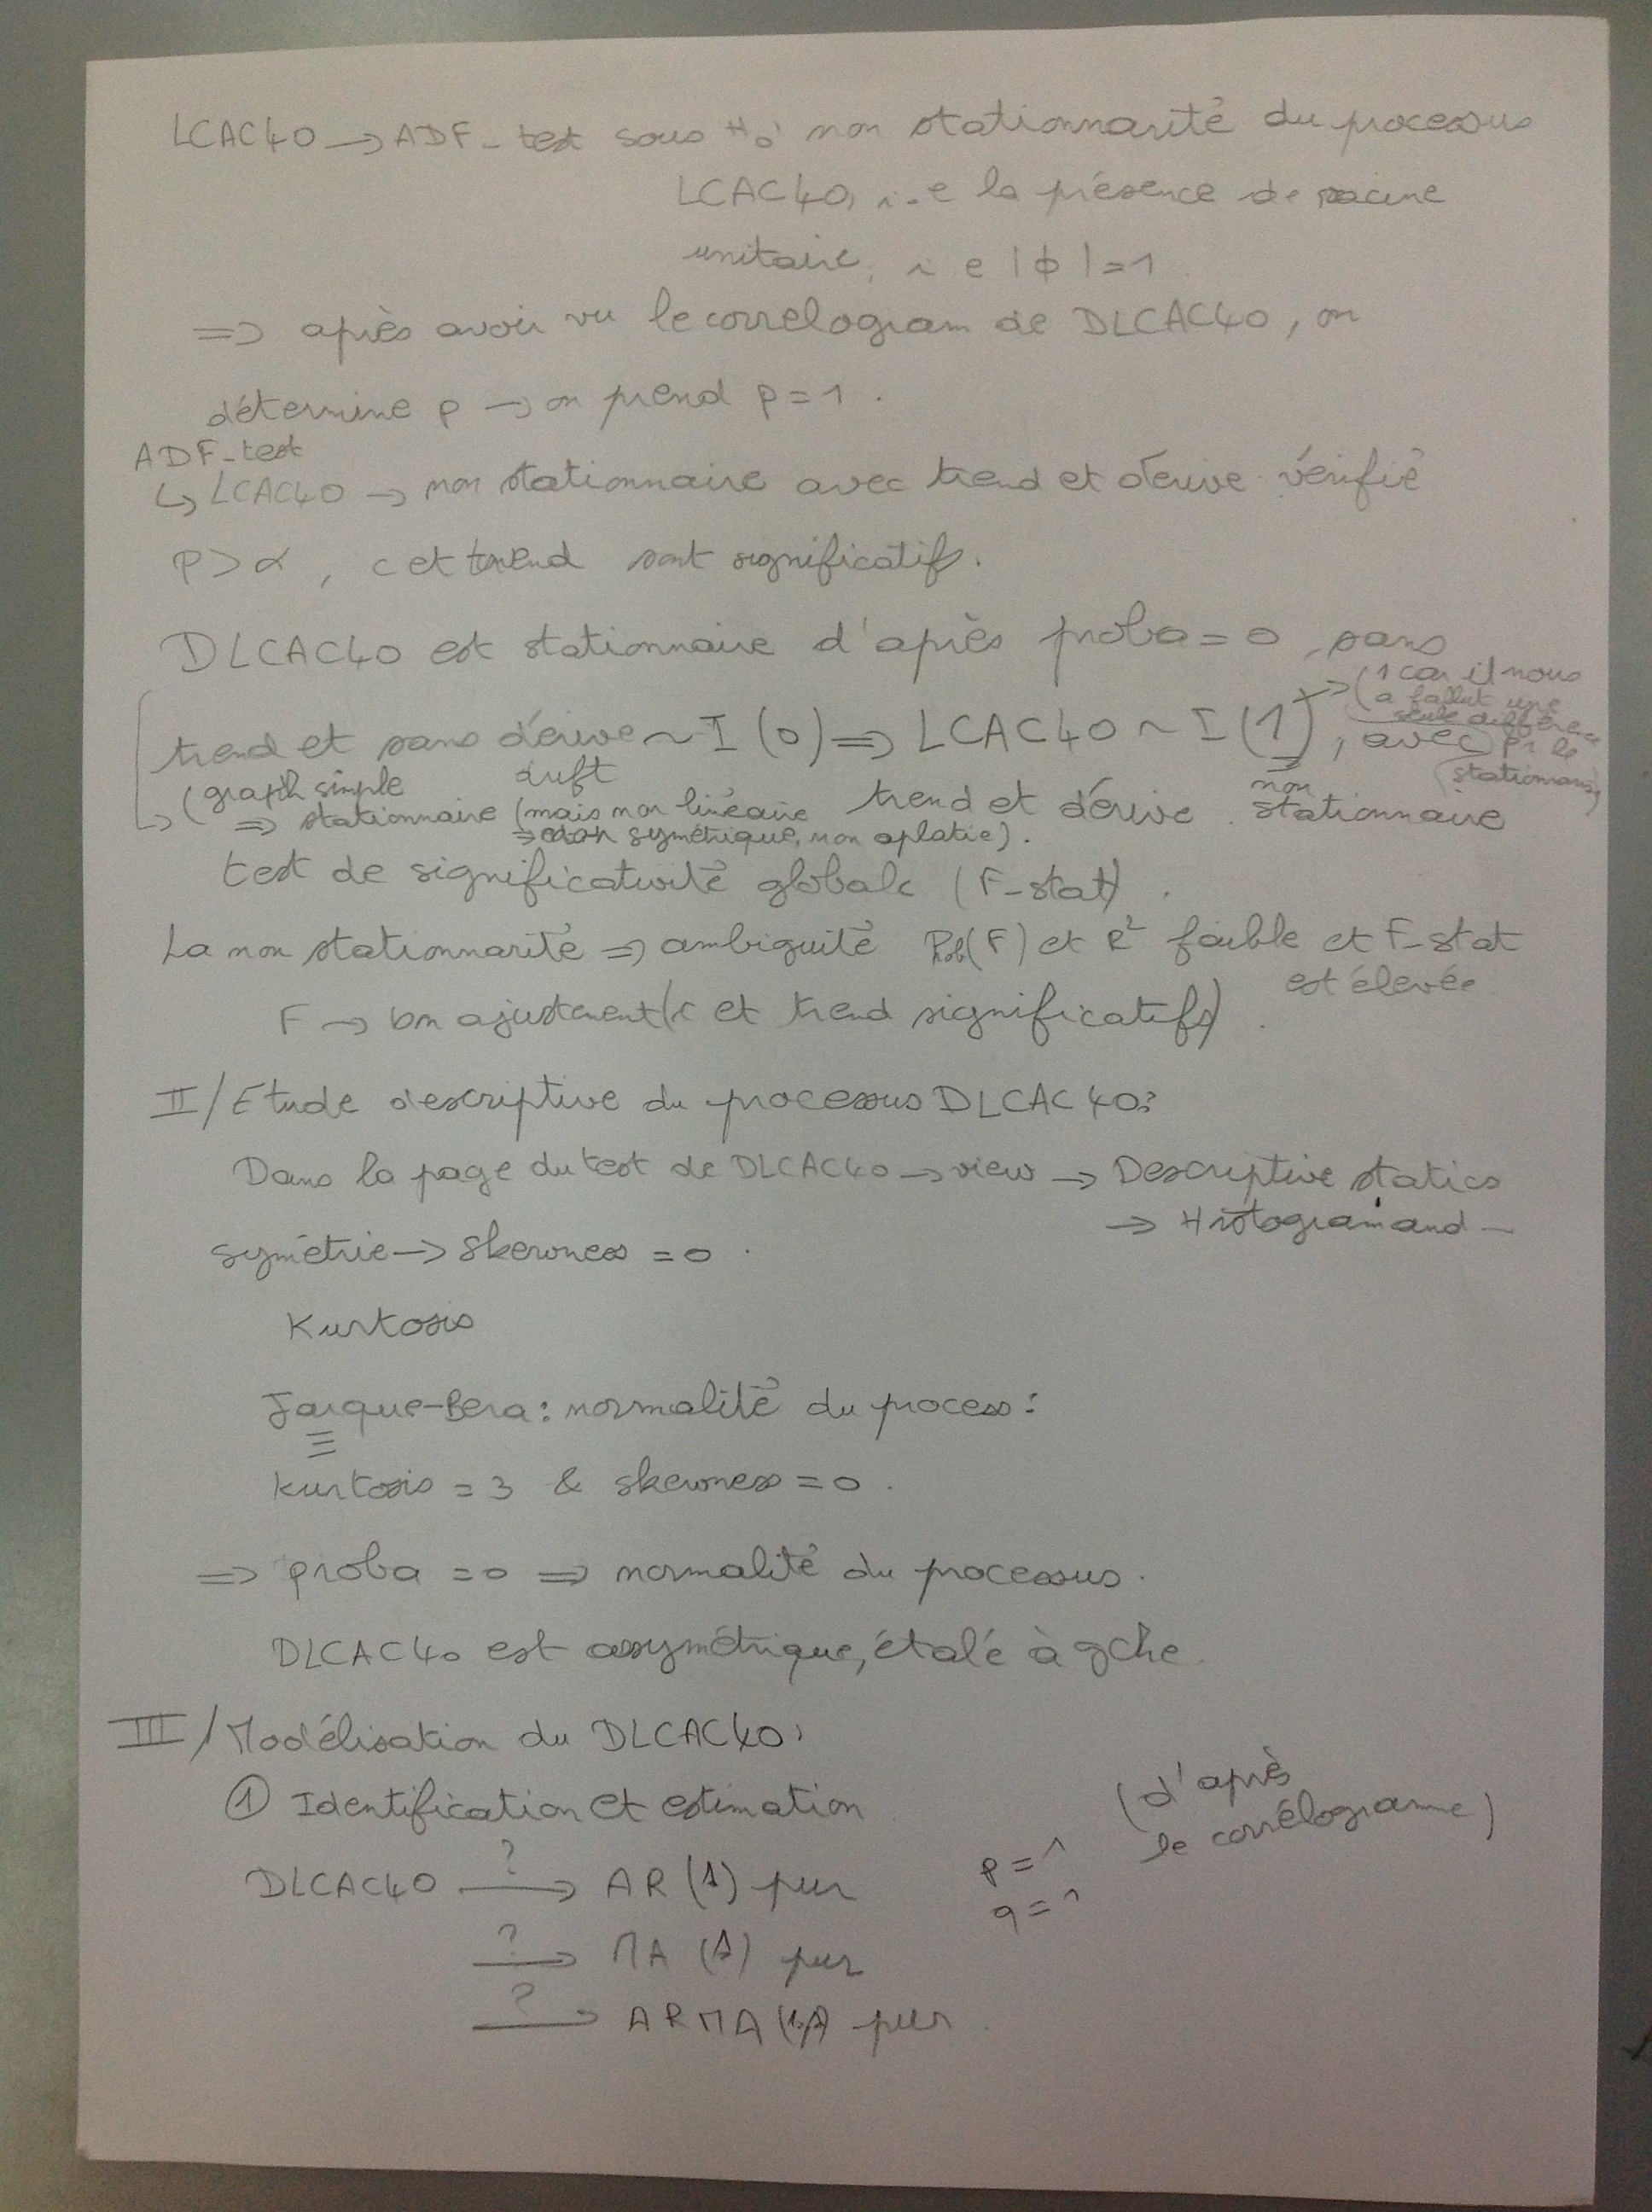 LCAC40 → ADF_test sous H0: non stationnarité du processus
LCAC40, i.e la présence de racine
unitaire, i e |ϕ|=1
=> après avoir vu le correlogram de DLCAC40, on
détermine p → on prend p=1.
ADF_test
↳ LCAC40 → non stationnaire avec trend et dérive vérifié
P>α, c et trend sont significatifs.
DLCAC40 est stationnaire d'après proba=0, sans
(1 car il nous
a fallut une
seule différence
pr le
stationnaris)
trend et sans dérive ~ I(0) => LCAC40 ~ I(1), avec
drift
non
(graph simple
=> stationnaire (mais non linéaire trend et dérive stationnaire
=> symétrique, non aplatie).
test de significativité globale (F_stat).
La non stationnarité => ambiguité Prob(F) et R² faible et F_stat
est élevée
F → bon ajustement (c et trend significatifs).
II/Etude descriptive du processus DLCAC40:
Dans la page du test de DLCAC40 → view → Descriptive statics
→ Histogram and –
symétrie → Skewness = 0.
Kurtosis
Jarque-Bera: normalité du process:
≡
Kurtosis = 3 & skewness = 0.
=> proba = 0 => normalité du processus.
DLCAC40 est assymétrique, étalé à gche.
III/Modélisation du DLCAC40:
① Identification et estimation
(d'après
le corrélogramme)
DLCAC40 ?→ AR(1) pur
p=1
q=1
?→ MA(1) pur
?→ ARMA(1,1) pur.